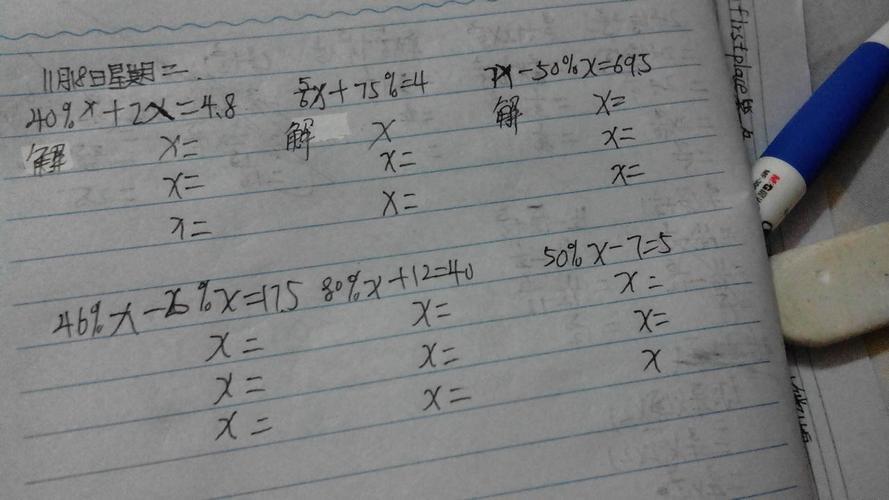 11月18日星期二.
40%x+2x=4.8
解 x=
x=
x=
5/6x+75%=4
解 x
x=
x=
-50%x=69.5
解 x=
x=
x=
46%x-%x=17.5
x=
x=
x=
80%x+12=40
x=
x=
x=
50%x-7=5
x=
x=
x
firstplace